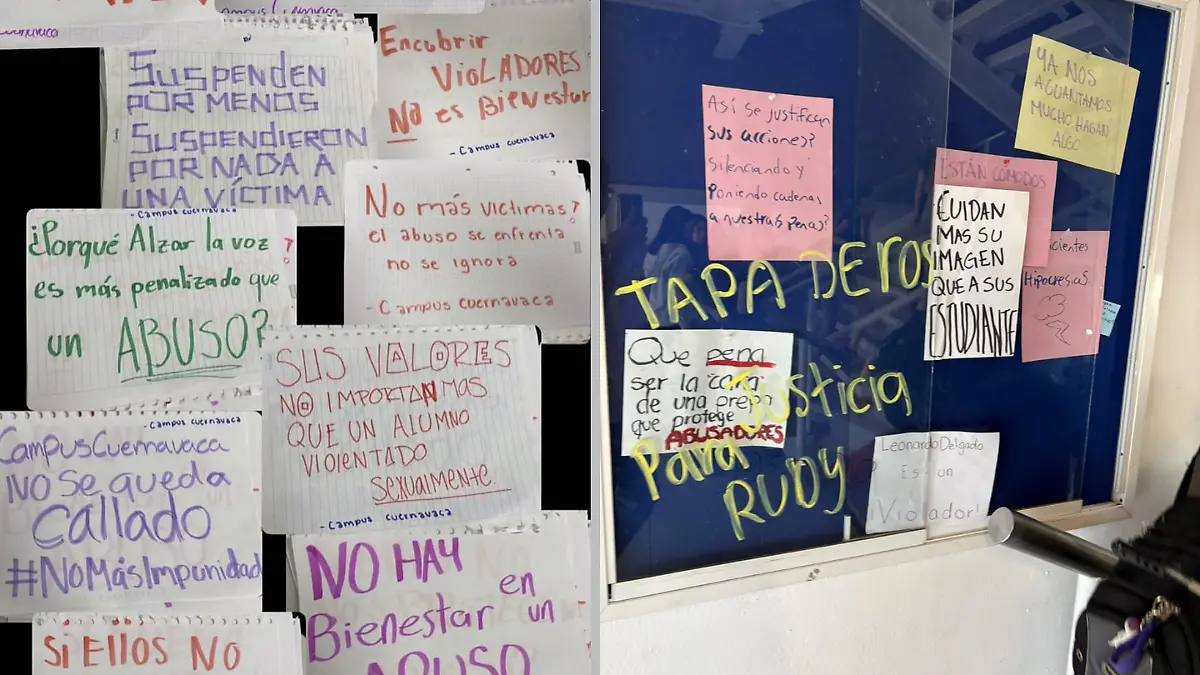 Campus Cuernavaca
Cuernavaca
Suspenden
por menos
Suspendieron
por nada a
una víctima
- Campus cuernavaca
Encubrir
VioLADORES
No es Bienestar
- Campus cuernavaca
¿Porqué Alzar la voz
es más penalizado que
un ABUSO?
No más victimas?
el abuso se enfrenta
no se ignora
- Campus cuernavaca
SUS VALORES
NO IMPORTAN MAS
QUE UN ALUMNO
VIOLENTADO
SEXUALMENTE.
- Campus cuernavaca
- Campus cuernavaca
CampusCuernavaca
NO Se queda
Callado
#NoMásImpunidad
NO HAY
Bienestar en
un
ABUSO
Si ELLOS NO
Así se justifican
sus acciones?
Silenciando y
Poniendo cadenas
a nuestras penas?
YA NOS
AGUANTAMOS
MUCHO HAGAN
ALGO
ESTÁN CÓMODOS
CUIDAN
MAS SU
IMAGEN
QUE A SUS
ESTUDIANTE
cientes
Hipocresias
TAPA DEROS
Que pena
ser la cara
de una prepa
que protege
ABUSADORES
Justicia
Para
RUDY
Leonardo Delgado
Es un
¡Violador!